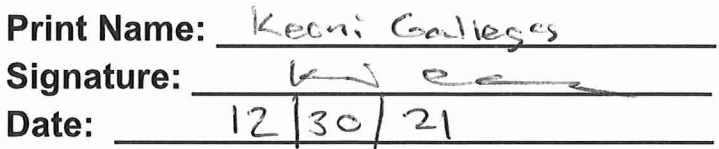 Print Name: Keoni Gallegos
Signature:
Date: 12/30/21